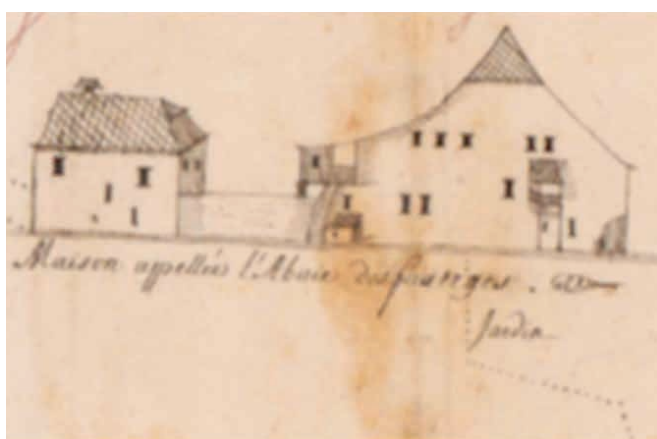 Maison appellée l'Abaie des
Jardin